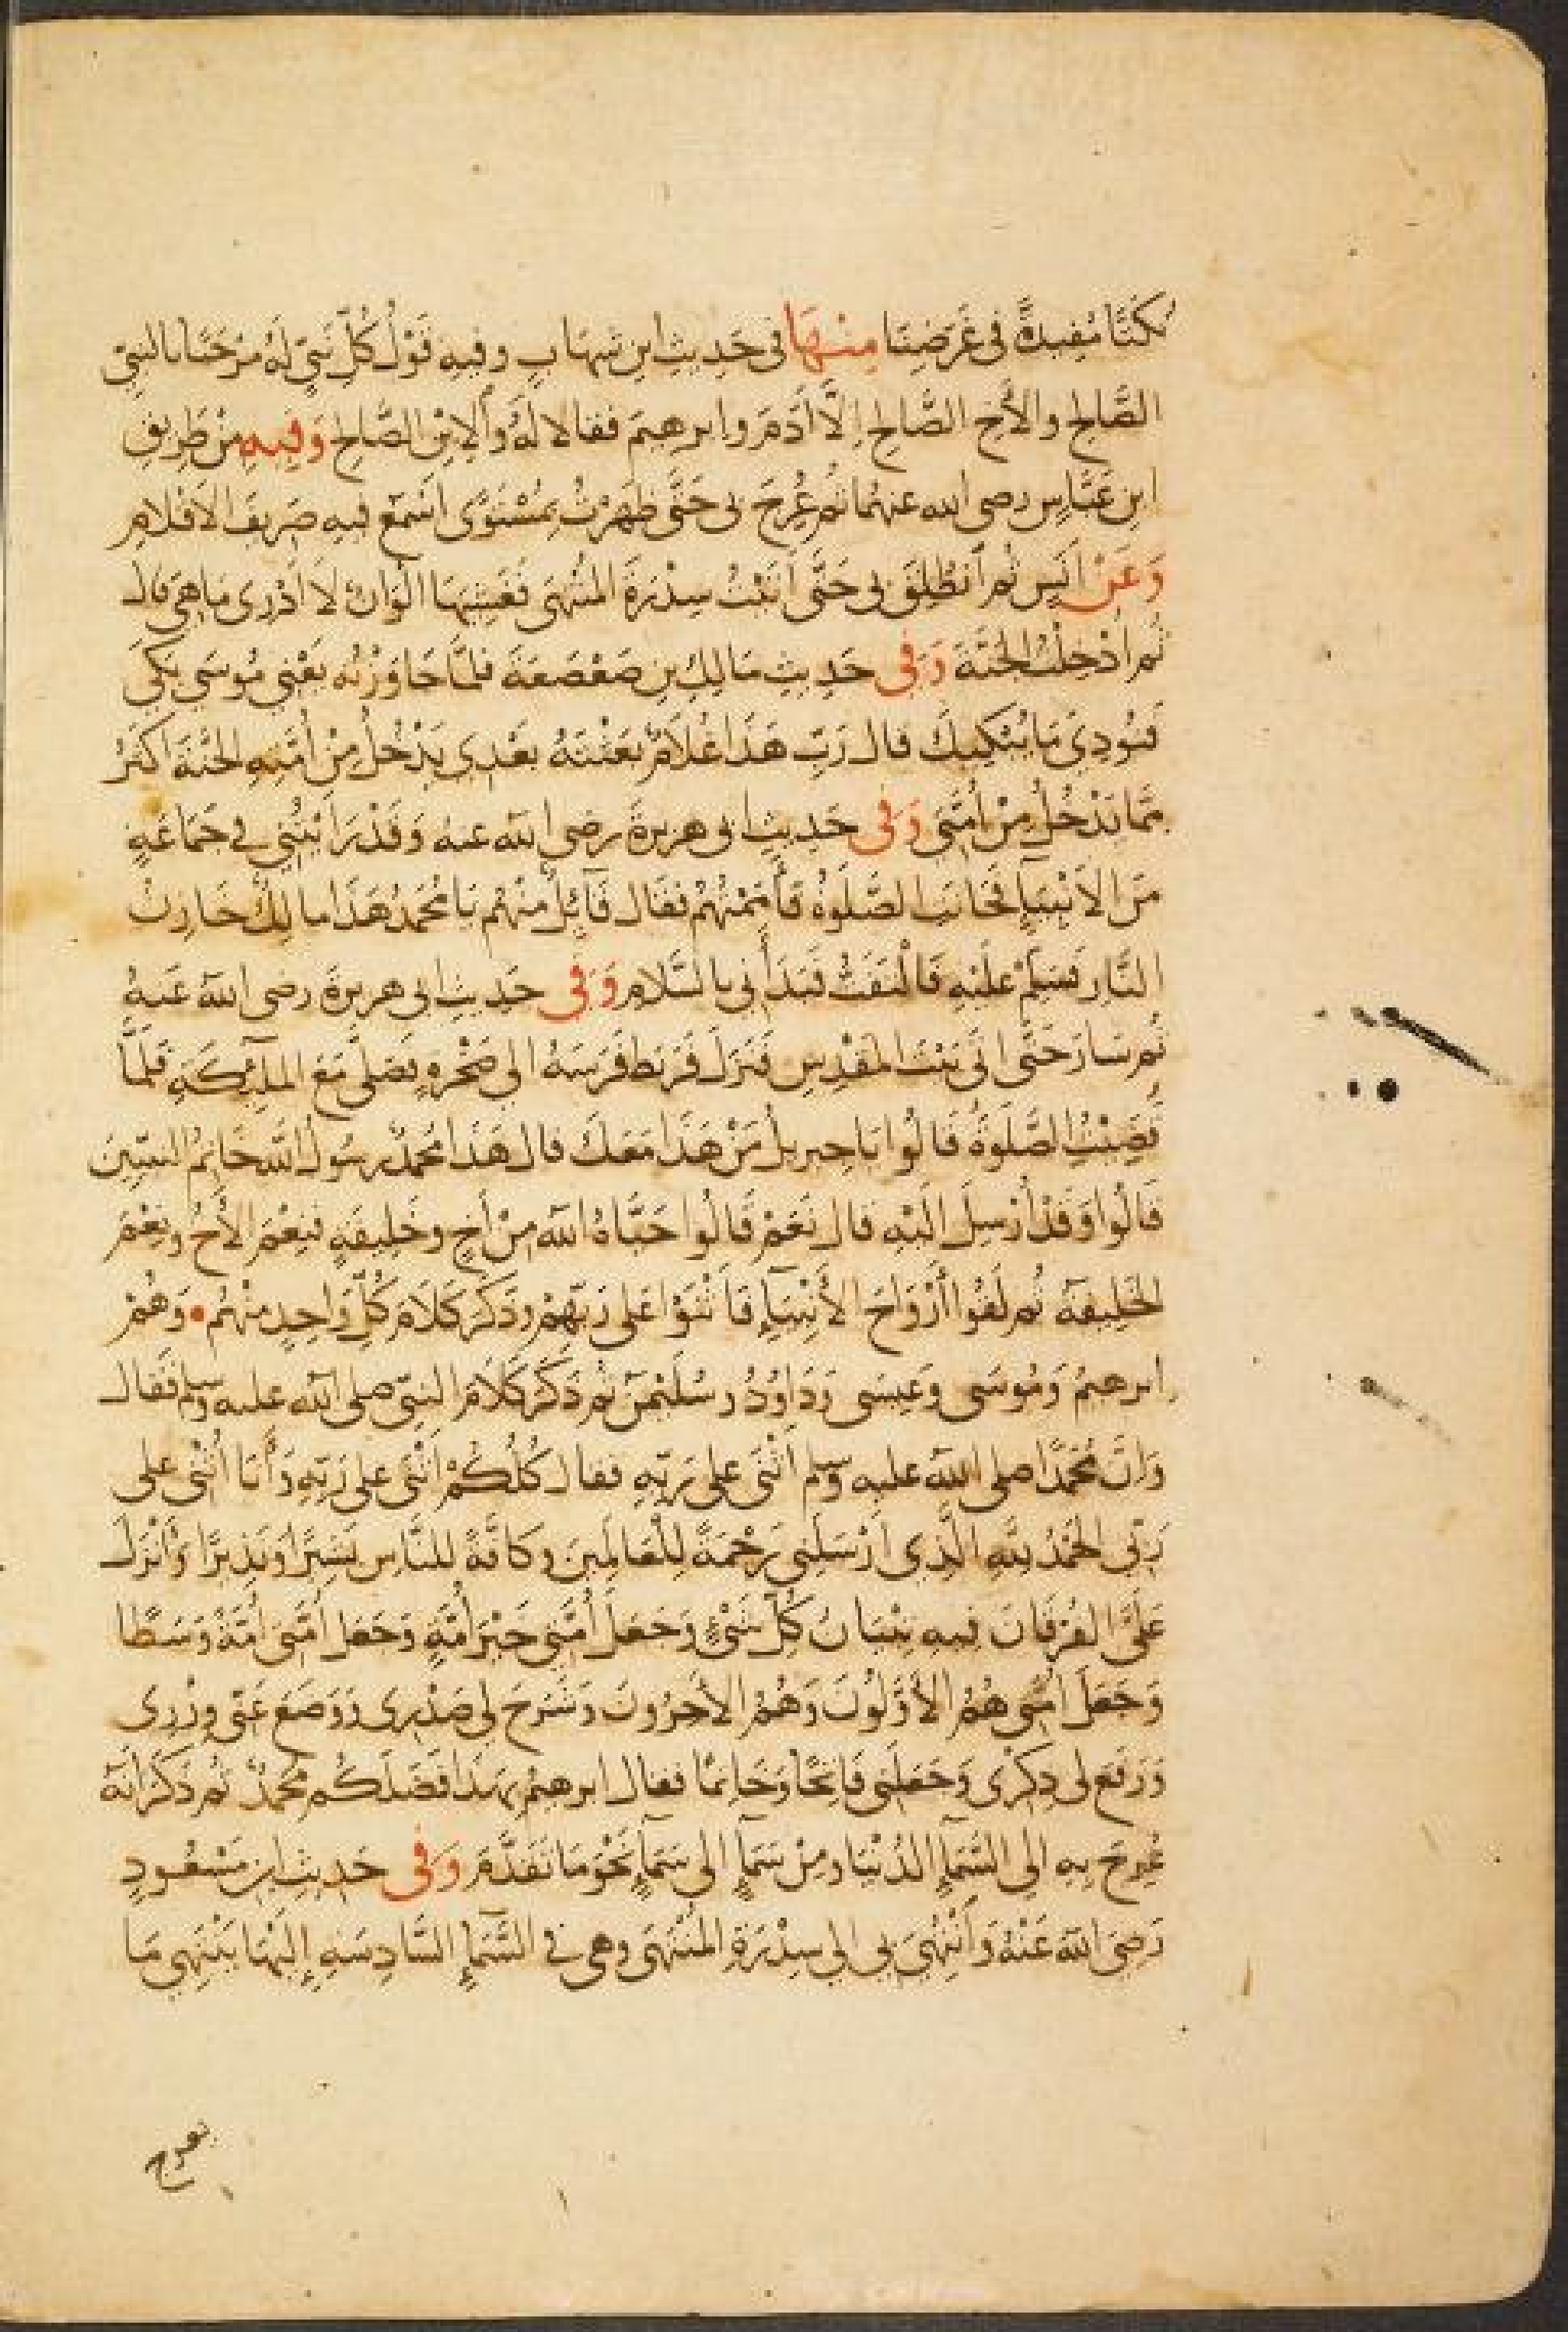 نُكَتًا مُفِيدةً فى غَرَضِنَا مِنْهَا فى حَدِيثِ ابنِ شِهَابٍ وفيه قَوْلُ كُلِّ نَبِىٍّ لَهُ مَرْحَبًا بالنبىِّ
الصَّالِحِ والأَخِ الصَّالِحِ اِلَّا آدَمَ وابرهيمَ فقالا لَهُ وَالِابْنِ الصَّالِحِ وَفِيهِ مِنْ طَرِيقِ
ابنِ عَبَّاسٍ رضى الله عنهُما ثُم عُرِجَ بى حَتَّى ظَهَرْتُ بمُسْتَوًى اَسْمَعُ فيهِ صَرِيفَ الاَقْلامِ
وَعَنْ اَنَسٍ ثُمَّ اَنْطُلِقَ بى حَتَّى اَتَيْتُ سِدْرَةَ المُنْتَهَى فَغَشِيَهَا اَلْوَانٌ لَا اَدْرِى مَا هِىَ قال
ثُمَّ اُدْخِلْتُ الجَنَّةَ وَفى حَدِيثِ مَالِكِ بنِ صَعْصَعَةَ فلمَّا جَاوَزْتُه يَعْنِى مُوسَى بَكَى
فَنُودِىَ مَا يُبْكِيكَ قال رَبِّ هَذَا غُلَامٌ بَعَثْتَهُ بَعْدِى يَدْخُلُ مِنْ اُمَّتِهِ الجَنَّةَ اَكْثَرُ
مِمَّا يَدْخُلُ مِنْ اُمَّتِى وَفى حَدِيثِ ابى هريرةَ رضى الله عنه وَقَدْ رَاَيْتُنِى فى جَمَاعَةٍ
مِنَ الاَنْبِيَآءِ فَحَانَتِ الصَّلَوةُ فَأَمَمْتُهُمْ فقال قَآئِلٌ مِنْهُم يَا مُحَمَّدُ هَذَا مالِكٌ خَازِنُ
النَّارِ فَسَلِّمْ عَلَيْهِ فَالْتَفَتُّ فَبَدَأَنِى بالسَّلَامِ وَفى حَدِيثِ ابى هريرةَ رضى الله عَنهُ
ثُم سَارَ حَتَّى اتَى بَيْتَ المَقْدِسِ فَنَزَلَ فَرَبَطَ فَرَسَهُ الى صَخْرَةٍ فَصَلَّى مَعَ المَلَئِكَةِ فَلَمَّا
قُضِيَتِ الصَّلَوةُ قَالُوا يَا جبريلُ مَنْ هَذَا مَعَكَ قال هَذَا مُحَمَّدٌ رسُولُ الله خَاتِمُ النبيِّينَ
قَالُوا وَقَدْ أُرْسِلَ اِلَيْهِ قال نَعَمْ قَالُوا حَيَّاهُ الله مِنْ أَخٍ وخَلِيفَةٍ فنِعْمَ الأَخُ ونِعْمَ
الخَلِيفَةُ ثُم لَقُوا أَرْوَاحَ الأَنْبِيَآءِ فَاَثْنَوْا عَلى رَبِّهِمْ وذَكَرَ كَلَامَ كُلِّ وَاحِدٍ مِنْهُم وَهُمْ
ابرهيمُ وَمُوسَى وَعِيسَى وَدَاوُدُ وسُلَيْمنُ ثُم ذَكَرَ كَلَامَ النبىِّ صلى الله عليه وسلم فَقال
وَاِنَّ مُحَمَّدًا صلى الله عليه وسلم اَثْنَى عَلى رَبِّهِ فقال كُلُّكُمْ اَثْنَى عَلى رَبِّهِ وَأَنَا أُثْنِى عَلى
رَبِّى الحَمْدُ لِلَّهِ الَّذِى اَرْسَلَنِى رَحْمَةً لِلْعَالَمِينَ وكَافَّةً للنَّاسِ بَشِيرًا وَنَذِيرًا وَأَنْزَلَ
عَلَىَّ الفُرْقَانَ فِيهِ تِبْيَانُ كُلِّ شَىْءٍ وَجَعَلَ اُمَّتِى خَيْرَ اُمَّةٍ وَجَعَلَ اُمَّتِى اُمَّةً وَسَطًا
وَجَعَلَ اُمَّتِى هُمُ الأَوَّلُونَ وَهُمُ الأَخِرُونَ وَشَرَحَ لِى صَدْرِى وَوَضَعَ عَنِّى وِزْرِى
وَرَفَعَ لِى ذِكْرِى وَجَعَلَنِى فَاتِحًا وَخَاتِمًا فقال ابرهيمُ بِهَذَا فَضَلَكُم مُحَمَّدٌ ثُم ذَكَرَ اَنَّهُ
عُرِجَ بِهِ الى السَّمَآءِ الدُّنْيَا ومِنْ سَمَآءٍ الى سَمَآءٍ نَحْوَ مَا تَقَدَّمَ وَفى حَدِيثِ ابنِ مَسْعُودٍ
رَضِىَ الله عَنْهُ وَاَنْتُهِىَ بِى الى سِدْرَةِ المُنْتَهَى وهى فى السَّمَآءِ السَّادِسَةِ اِلَيْهَا يَنْتَهِى مَا
يعرج